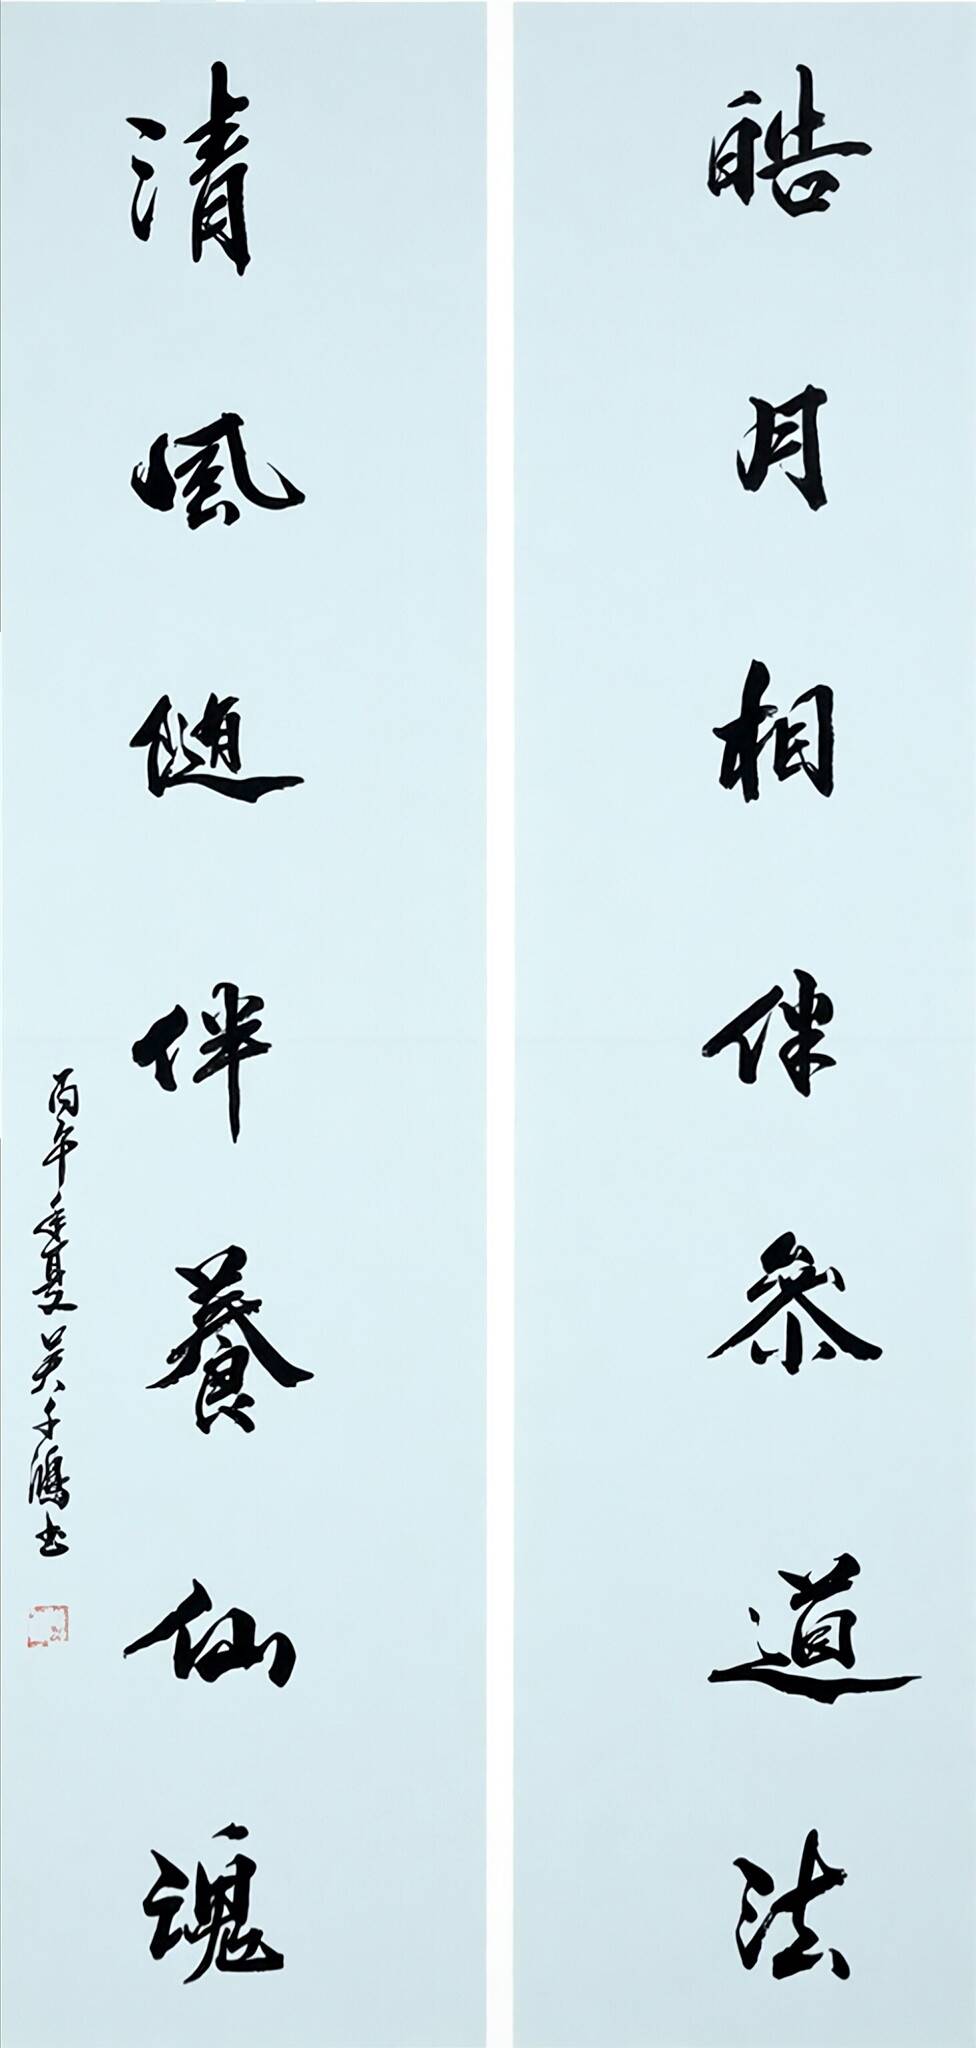 皓月相伴參道法
清風随伴養仙魂
丙午年夏吴千鴻书